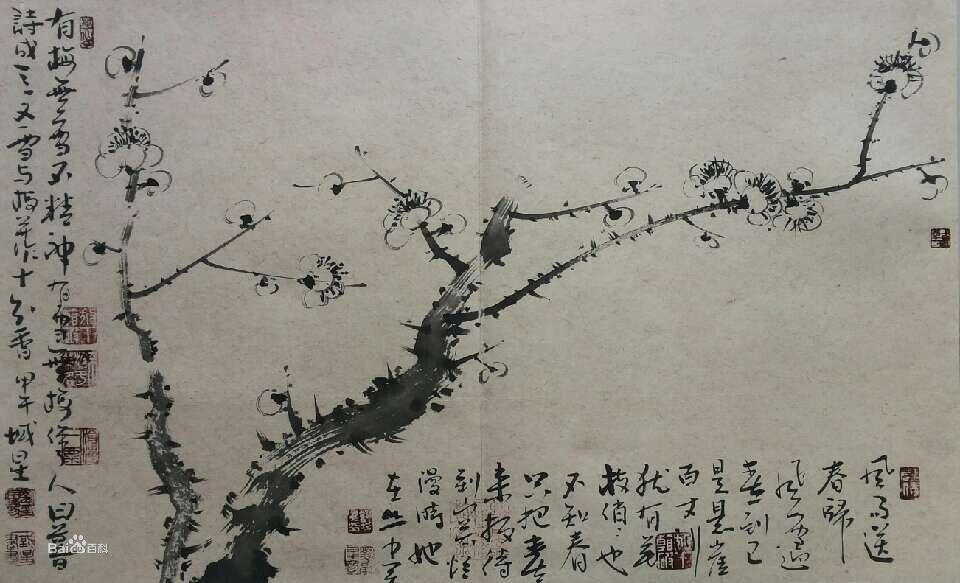 有梅無雪不精神有雪無梅俗人日暮
詩成天又雪与梅并作十分春 甲午 城星
風雨送
春歸
飛雪迎
春到已
是悬崖
百丈冰
犹有花
枝俏俏也
不争春
只把春
来报待
到山花烂
漫時她
在丛中笑
Bai百科